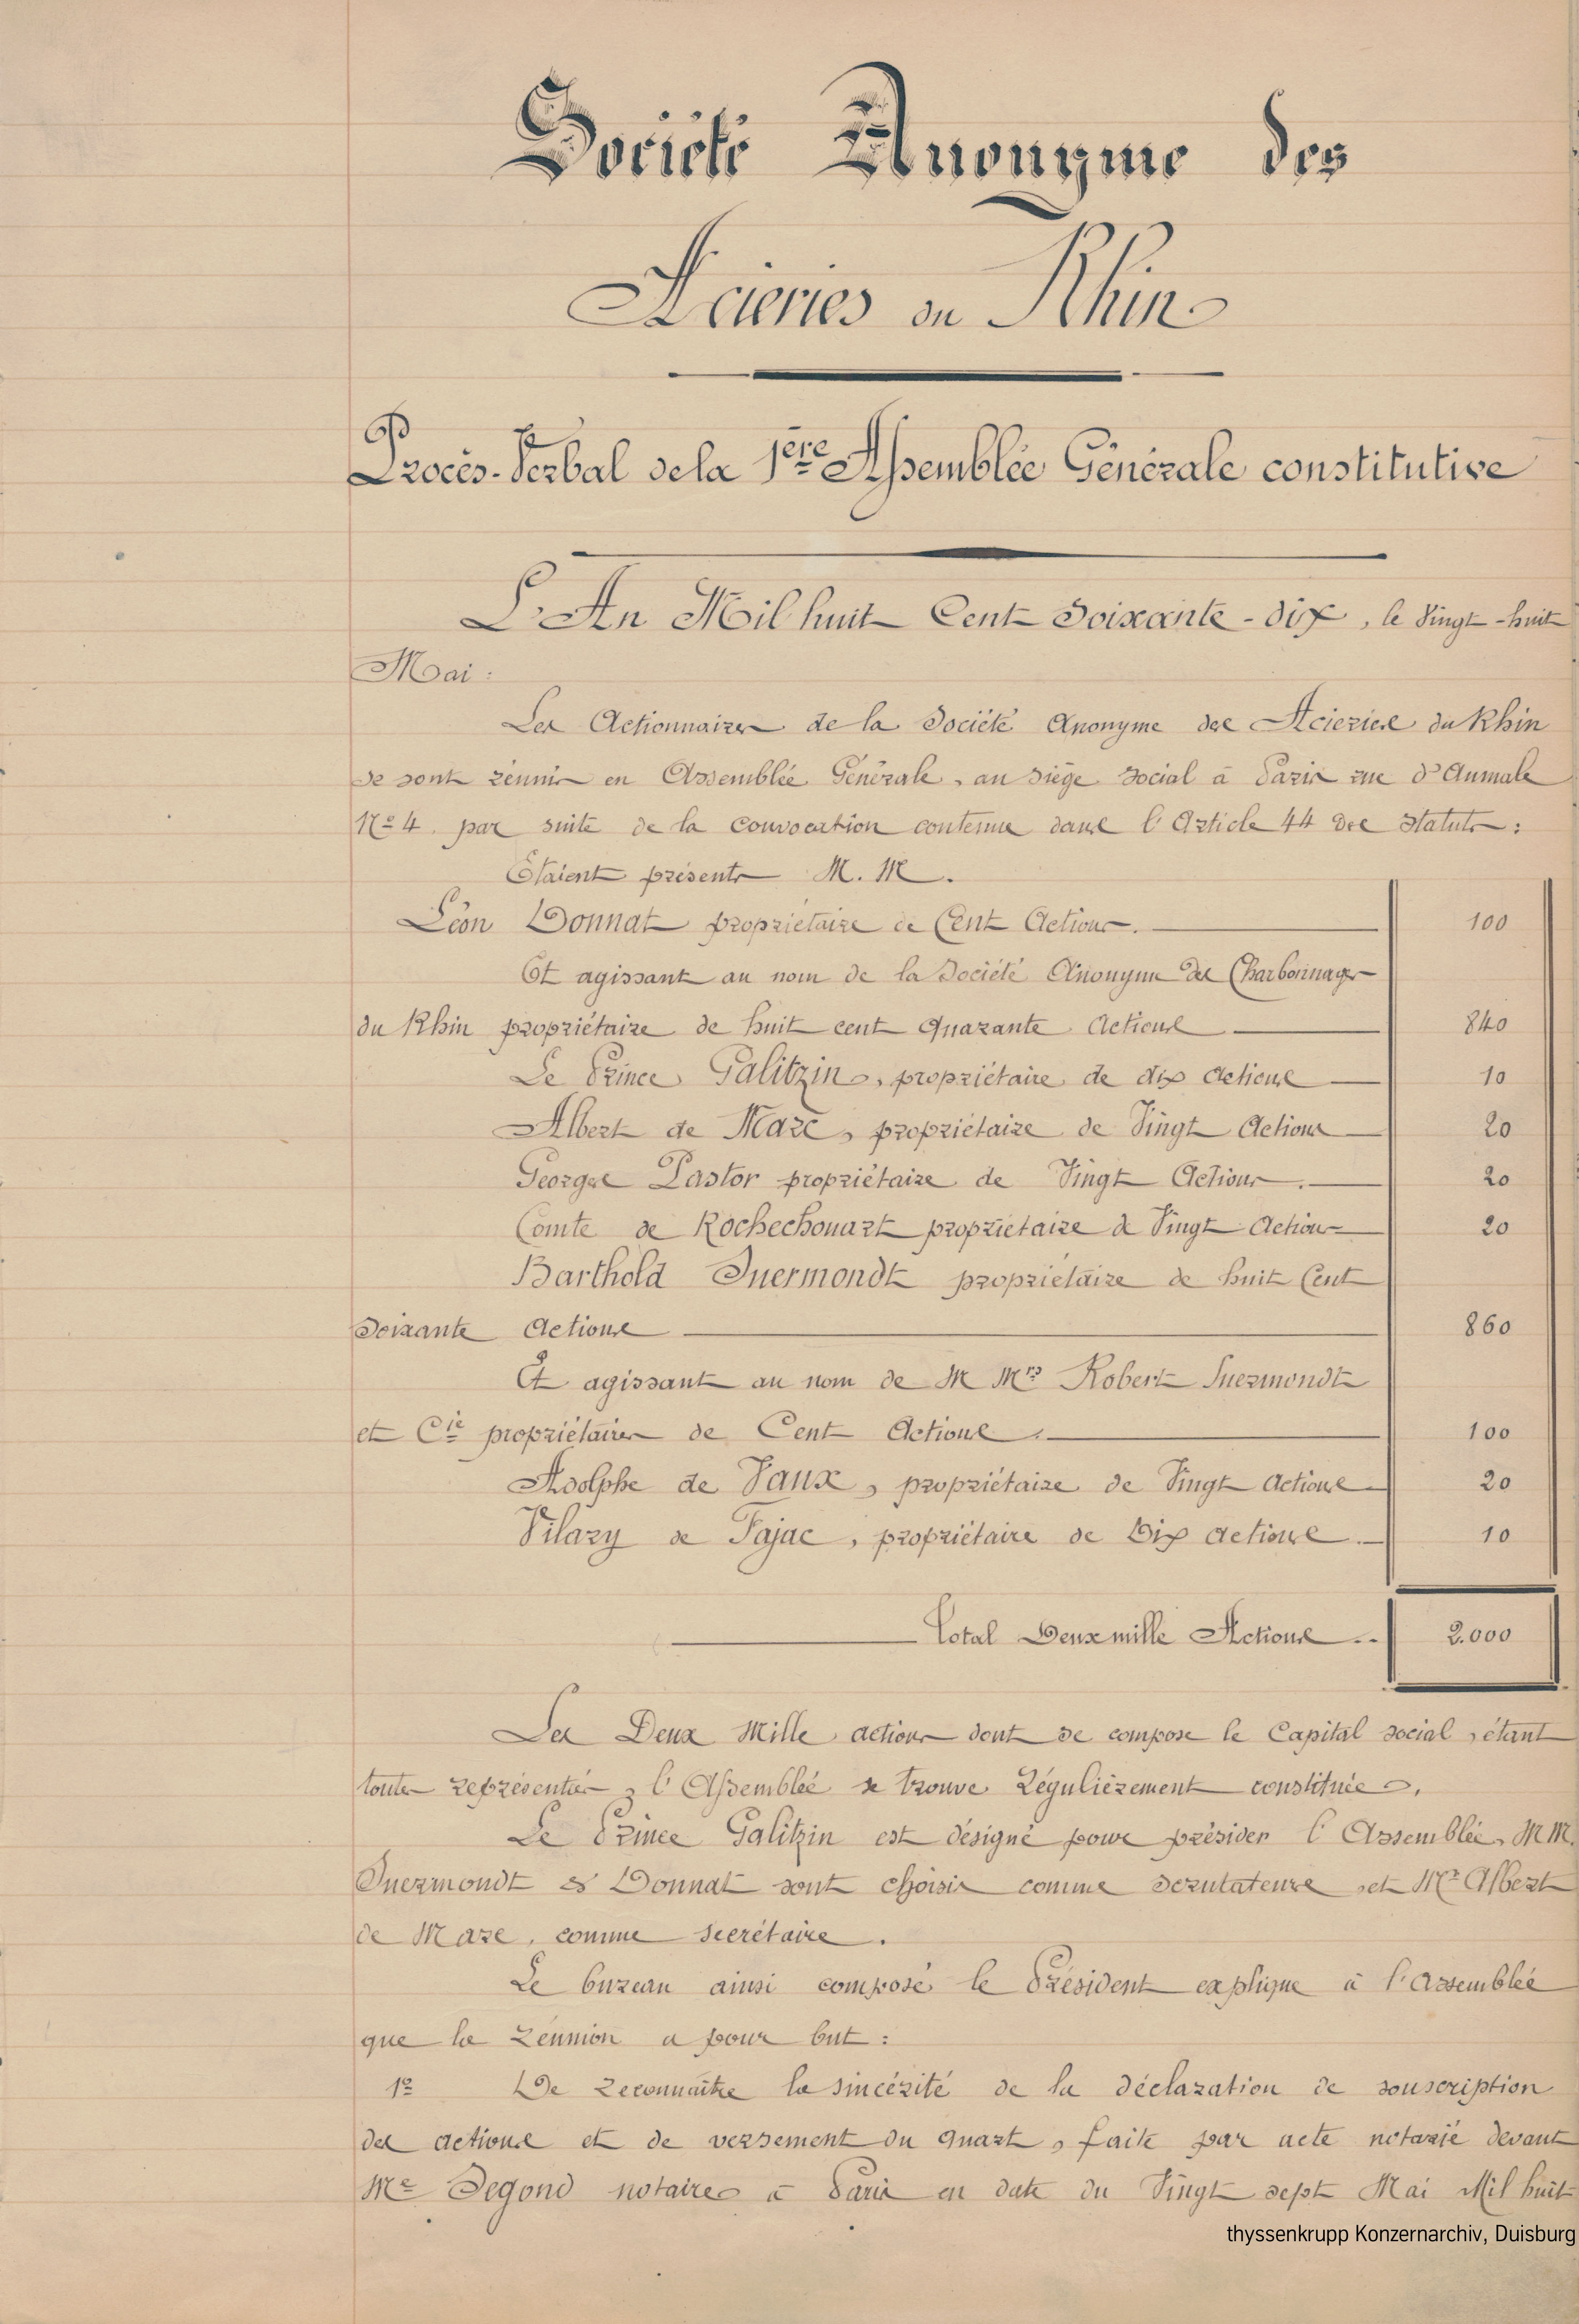 Société Anonyme des
Aciéries du Rhin
Procès-Verbal de la 1ère Assemblée Générale constitutive
L'An Mil huit Cent Soixante-dix, le Vingt-huit
Mai :
Les Actionnaires de la Société Anonyme des Aciéries du Rhin
se sont réunis en Assemblée Générale, au siège social à Paris rue d'Aumale
No 4. par suite de la convocation contenue dans l'Article 44 des Statuts :
Etaient présents M. M.
Léon Donnat propriétaire de Cent Actions. 100
Et agissant au nom de la Société Anonyme des Charbonnages
du Rhin propriétaire de huit cent quarante Actions 840
Le Prince Galitzin, propriétaire de dix actions 10
Albert de Mare, propriétaire de Vingt Actions 20
Georges Pastor propriétaire de Vingt Actions. 20
Comte de Rochechouart propriétaire de Vingt Actions 20
Barthold Suermondt propriétaire de huit Cent
Soixante Actions 860
Et agissant au nom de M Mrs Robert Suermondt
et Cie propriétaires de Cent Actions. 100
Adolphe de Vaux, propriétaire de Vingt Actions 20
Vilary de Fajac, propriétaire de Dix actions. 10
Total Deux mille Actions .. 2.000
Les Deux Mille actions dont se compose le Capital social, étant
toutes représentées, l'Assemblée se trouve Régulièrement constituée.
Le Prince Galitzin est désigné pour présider l'Assemblée, MM.
Suermondt & Donnat sont choisis comme scrutateurs et Mr Albert
de Mare, comme secrétaire.
Le bureau ainsi composé le Président explique à l'assemblée
que la Réunion a pour but :
1o De Reconnaître la sincérité de la déclaration de souscription
des actions et de versement du quart, faite par acte notarié devant
Me Segond notaire à Paris en date du Vingt sept Mai Mil huit
thyssenkrupp Konzernarchiv, Duisburg